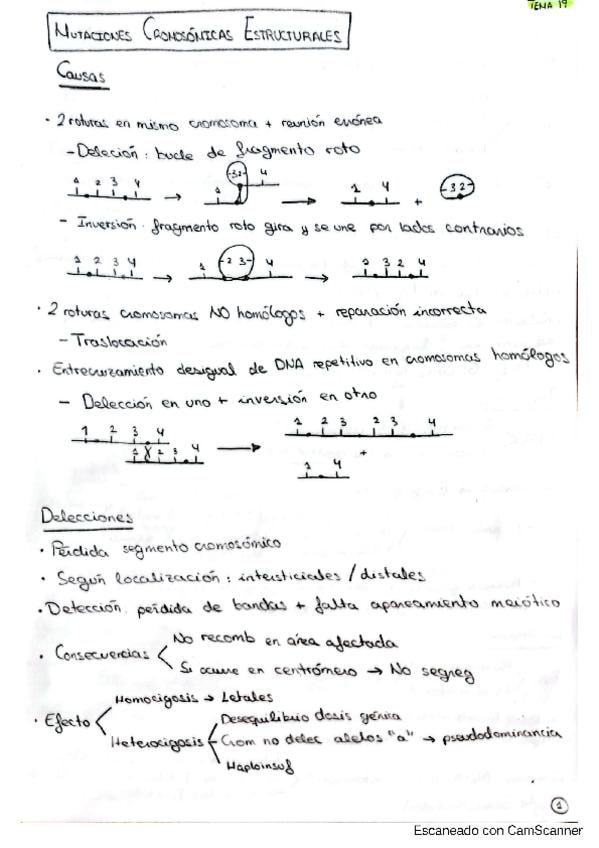 TEMA 19
MUTACIONES CROMOSÓMICAS ESTRUCTURALES
Causas
· 2 roturas en mismo cromosoma + reunión errónea
- Deleción: bucle de fragmento roto
1 2 3 4 → 1 -32- 4 → 1 4 + -32-
- Inversión: fragmento roto gira y se une por lados contrarios
1 2 3 4 → 1 -2 3- 4 → 1 3 2 4
· 2 roturas cromosomas NO homólogos + reparación incorrecta
- Traslocación
· Entrecruzamiento desigual de DNA repetitivo en cromosomas homólogos
- Delección en uno + inversión en otro
1 2 3 4 1 2 3 2 3 4
1 2 3 4 → +
1 4
Delecciones
· Pérdida segmento cromosómico
· Según localización: intersticiales / distales
· Detección: pérdida de bandas + falta apareamiento meiótico
· Consecuencias < No recomb en área afectada
Si ocurre en centrómero → No segreg
Homocigosis → Letales
· Efecto < Desequilibrio dosis génica
Heterocigosis Crom no delec alelos "a" → pseudodominancia
Haploinsuf
1
Escaneado con CamScanner